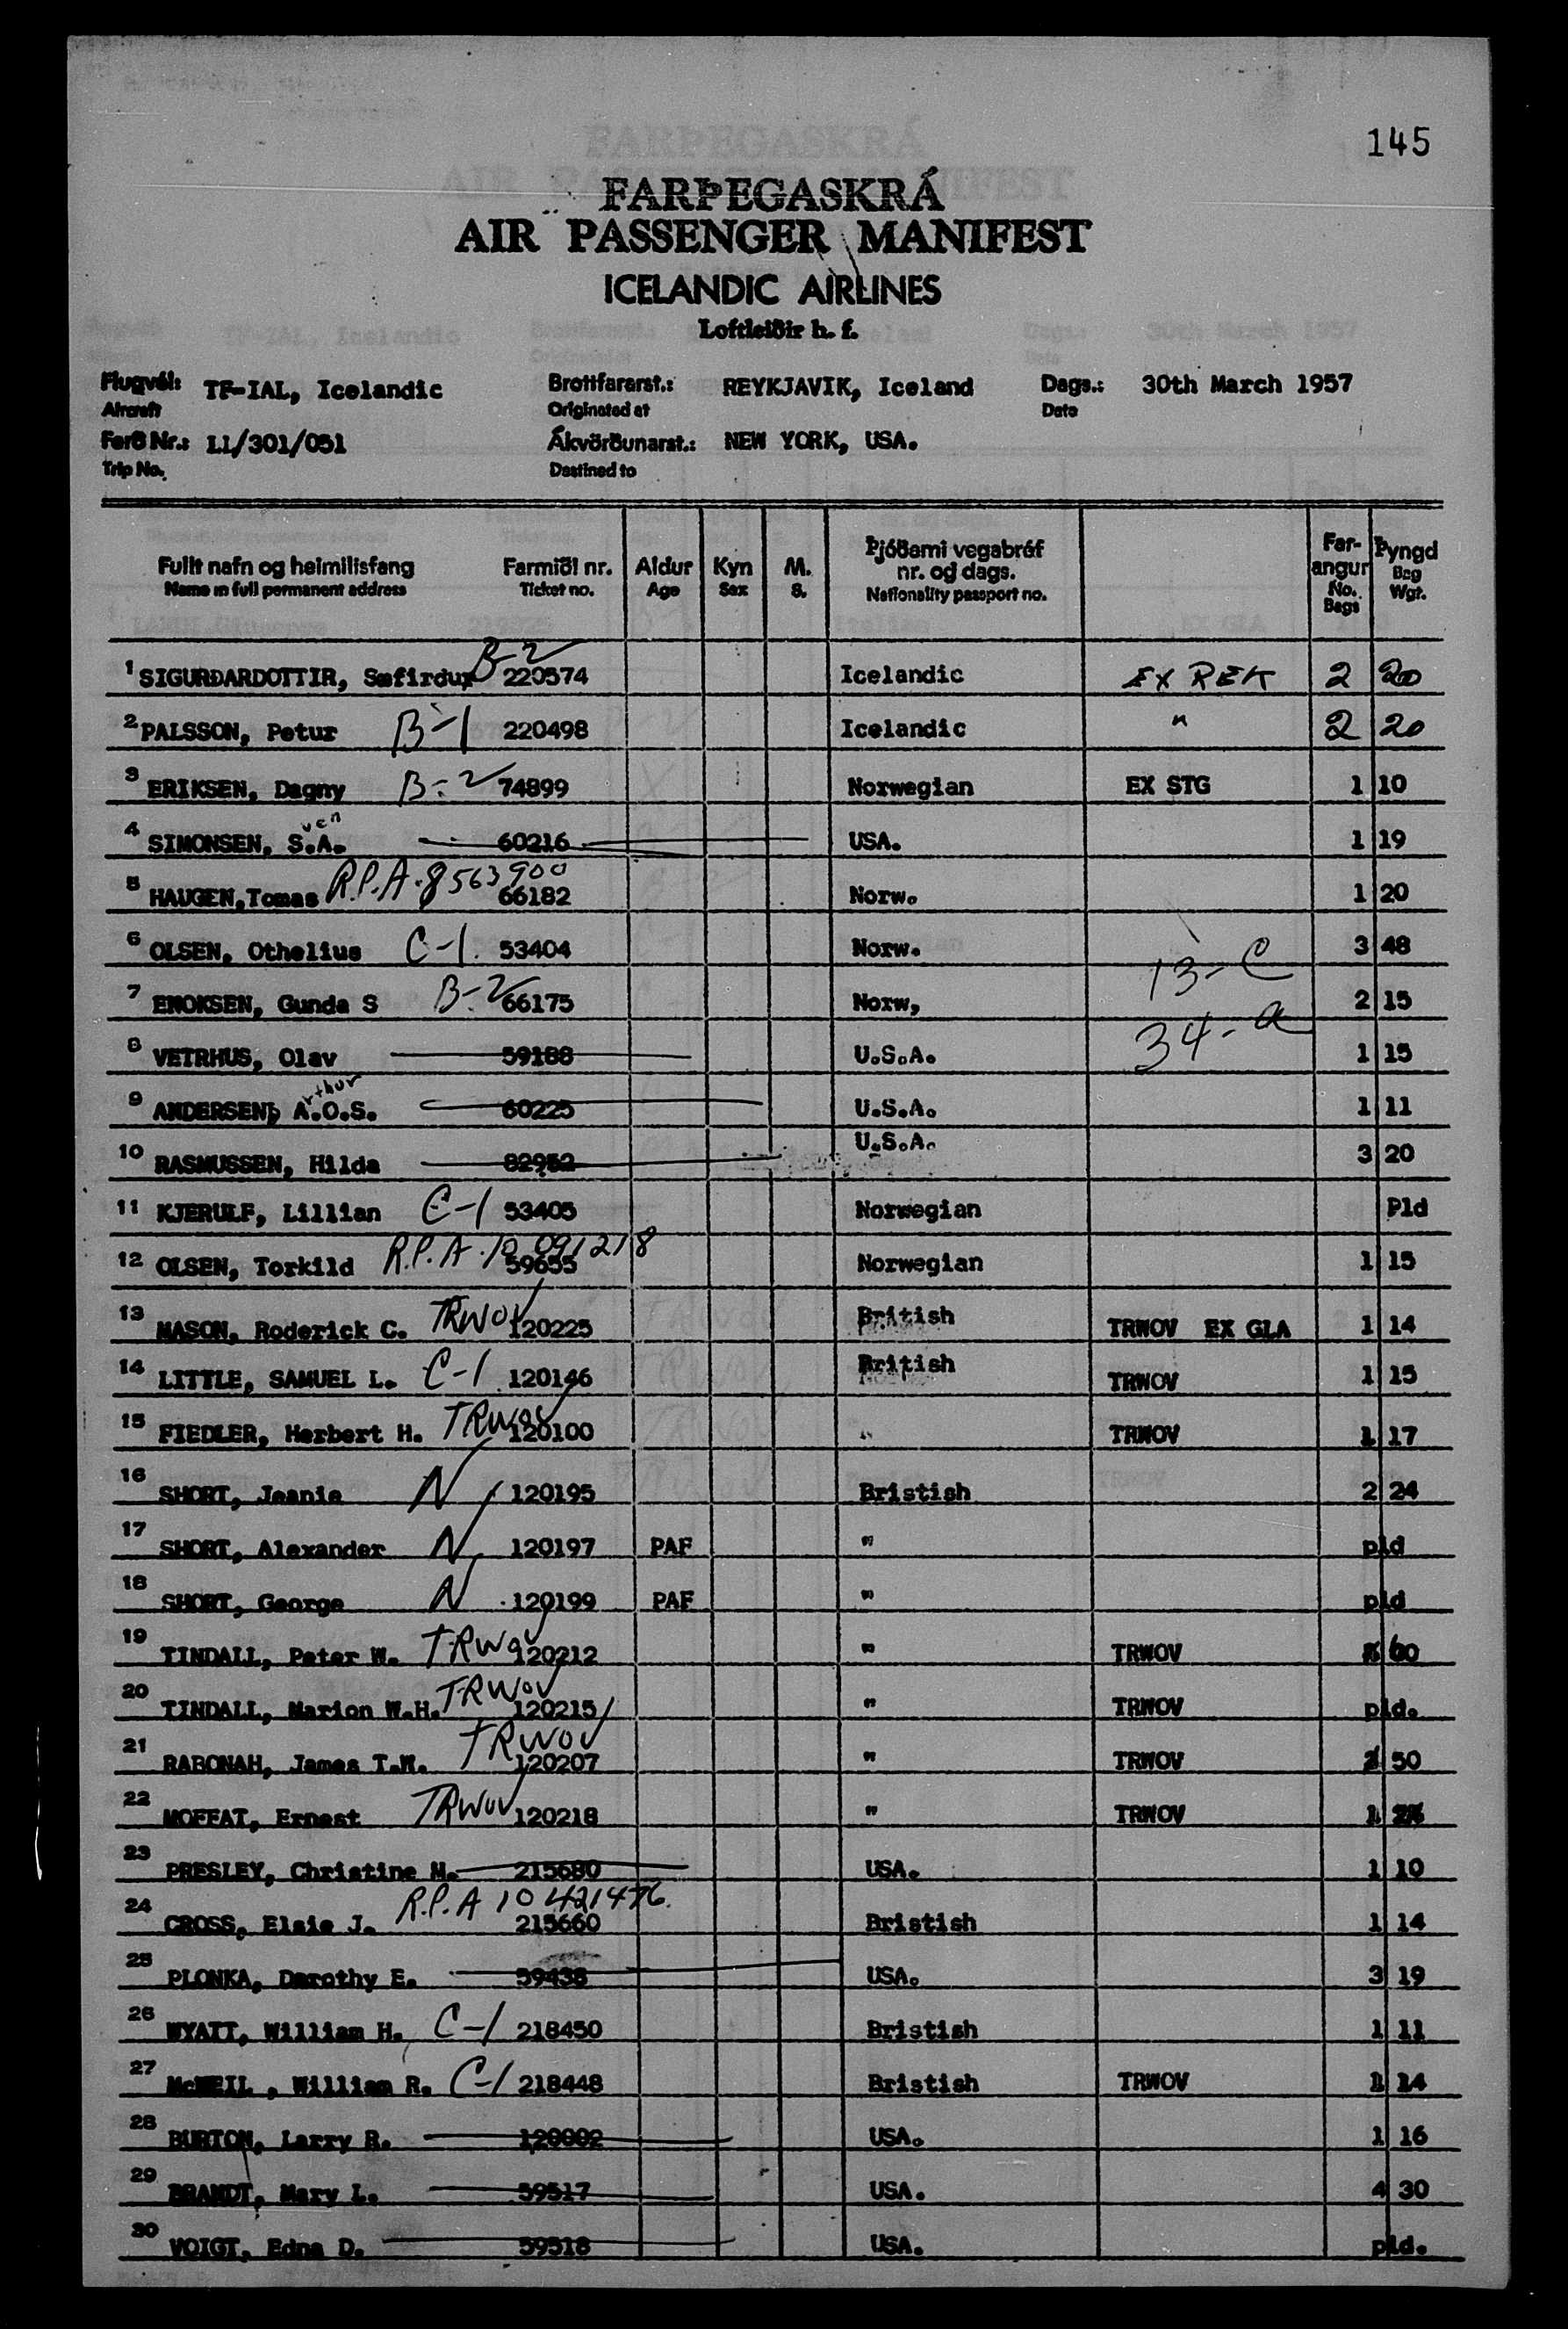 145
FARÞEGASKRÁ
AIR PASSENGER MANIFEST
ICELANDIC AIRLINES
Loftleiðir h. f.
Flugvél: TF-IAL, Icelandic Brottfararst.: REYKJAVIK, Iceland Dags.: 30th March 1957
Aircraft Originated at Date
Ferð Nr.: LL/301/051 Ákvörðunarst.: NEW YORK, USA.
Trip No. Destined to
Fullt nafn og heimilisfang Farmiði nr. Aldur Kyn M. Þjóðerni vegabréf nr. og dags. Farangur Þyngd
Name in full permanent address Ticket no. Age Sex S. Nationality passport no. No. Bags Bag Wgt.
1 SIGURÐARDOTTIR, B-2 220574 Icelandic EX REK 2 20
2 PALSSON, Petur B-1 220498 Icelandic " 2 20
3 ERIKSEN, Dagny B-2 74899 Norwegian EX STG 1 10
4 SIMONSEN, S.A. ven 60216 USA. 1 19
5 HAUGEN,Tomas R.P.A. 8563900 66182 Norw. 1 20
6 OLSEN, Othelius C-1 53404 Norw. 3 48
13-C
7 ENOKSEN, Gunda S B-2 66175 Norw, 2 15
34-a
8 VETRHUS, Olav 59188 U.S.A. 1 15
9 ANDERSEN, A.O.S. rthur 60225 U.S.A. 1 11
10 RASMUSSEN, Hilda 82952 U.S.A. 3 20
11 KJERULF, Lillian C-1 53405 Norwegian Pld
12 OLSEN, Torkild R.P.A. 10 091218 59655 Norwegian 1 15
13 MASON, Roderick C. TRWOV 120225 British TRWOV EX GLA 1 14
14 LITTLE, SAMUEL L. C-1 120146 British TRWOV 1 15
15 FIEDLER, Herbert H. TRWOV 120100 " TRWOV 1 17
16 SHORT, Jeanie N 120195 Bristish 2 24
17 SHORT, Alexander N 120197 PAF " pld
18 SHORT, George N 120199 PAF " pld
19 TINDALL, Peter W. TRWOV 120212 " TRWOV 60
20 TINDALL, Marion W.H. TRWOV 120215 " TRWOV pld.
21 RABONAH, James T.W. TRWOV 120207 " TRWOV 50
22 MOFFAT, Ernest TRWOV 120218 " TRWOV 1
23 PRESLEY, Christine M. 215680 USA. 1 10
24 CROSS, Elsie J. R.P.A 10 421476 215660 Bristish 1 14
25 PLONKA, Dorothy E. 59438 USA. 3 19
26 WYATT, William H. C-1 218450 Bristish 1 11
27 McNEIL , William R. C-1 218448 Bristish TRWOV 1 14
28 BURTON, Larry R. 120002 USA. 1 16
29 BRANDT, Mary L. 59517 USA. 4 30
30 VOIGT, Edna D. 59518 USA. pld.